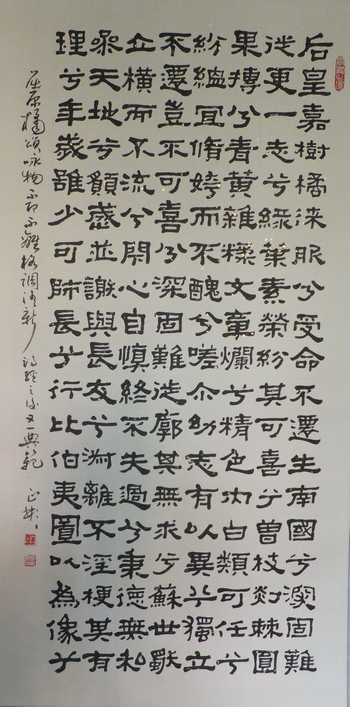 后皇嘉樹橘徠服兮受命不遷生南國兮深固難
徙更一志兮綠葉素榮紛其可喜兮曾枝剡棘圓
果摶兮青黃雜糅文章爛兮精色內白類可任兮
紛縕宜脩姱而不醜兮嗟尒幼志有以異兮獨立
不遷豈不可喜兮深固難徙廓其無求兮蘇世獨
立橫而不流兮閉心自慎終不失過兮秉德無私
參天地兮願歲並謝與長友兮淑離不淫梗其有
理兮年歲雖少可師長兮行比伯夷置以為像兮
屈原橘頌咏物不即不離格調清新詩經之後又典範